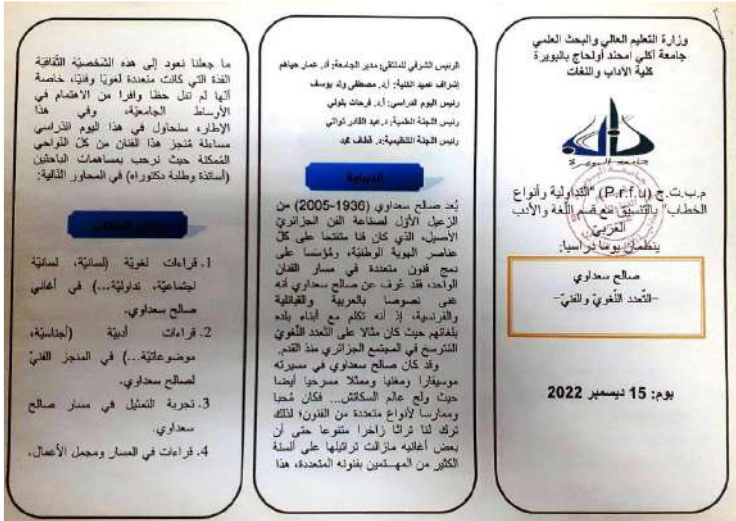 وزارة التعليم العالي والبحث العلمي
جامعة أكلي امحند أولحاج بالبويرة
كلية الآداب واللغات
جامعة البويرة
م.ب.ت.ج (P.r.f.u) "التداولية وأنواع
الخطاب" بالتنسيق مع قسم اللغة والأدب
العربي
ينظمان يوما دراسيا:
صالح سعداوي
-التّعدد اللّغويّ والفنيّ-
يوم: 15 ديسمبر 2022
الرئيس الشرفي للملتقى: مدير الجامعة: أ.د. عمار حياهم
إشراف عميد الكلية: أ.د. مصطفى ولد يوسف
رئيس اليوم الدراسي: أ.د. فرحات بلولي
رئيس اللجنة العلمية: د. عبد القادر تواتي
رئيس اللجنة التنظيمية: د. قطاف محمد
الديباجة
يُعد صالح سعداوي (1936-2005) من
الرعيل الأوّل لصناعة الفن الجزائريّ
الأصيل، الذي كان فنا منفتحا على كلّ
عناصر الهوية الوطنيّة، ومُؤسّسا على
دمج فنون متعددة في مسار الفنان
الواحد، فقد عُرف عن صالح سعداوي أنه
غنى نصوصا بالعربية والقبائلية
والفرنسية، إذ أنه تكلم مع أبناء بلده
بلغاتهم حيث كان مثالا على التّعدد اللّغويّ
المُترسخ في المجتمع الجزائري منذ القدم.
وقد كان صالح سعداوي في مسيرته
موسيقارا ومغنيا وممثلا مسرحيا أيضا
حيث ولج عالم السكاتش... فكان مُحبا
وممارسا لأنواع متعددة من الفنون؛ لذلك
ترك لنا تراثا زاخرا متنوعا حتى أن
بعض أغانيه مازالت تراتيلها على ألسنة
الكثير من المهتمين بفنونه المتعددة، هذا
ما جعلنا نعود إلى هذه الشّخصيّة الثّقافيّة
الفذة التي كانت متعددة لغويّا وفنيّا، خاصة
أنّها لم تنل حظا وافرا من الاهتمام في
الأوساط الجامعيّة، وفي هذا
الإطار، سنحاول في هذا اليوم الدّراسي
مساءلة مُنجز هذا الفنان من كلّ النّواحي
المُمكنة حيث نرحب بمساهمات الباحثين
(أساتذة وطلبة دكتوراه) في المحاور التّالية:
1. قراءات لغويّة (لسانيّة، لسانيّة
اجتماعيّة، تداوليّة...) في أغاني
صالح سعداوي.
2. قراءات أدبيّة (أجناسيّة،
موضوعاتيّة...) في المنجز الفنيّ
لصالح سعداوي.
3. تجربة التمثيل في مسار صالح
سعداوي.
4. قراءات في المسار ومجمل الأعمال.